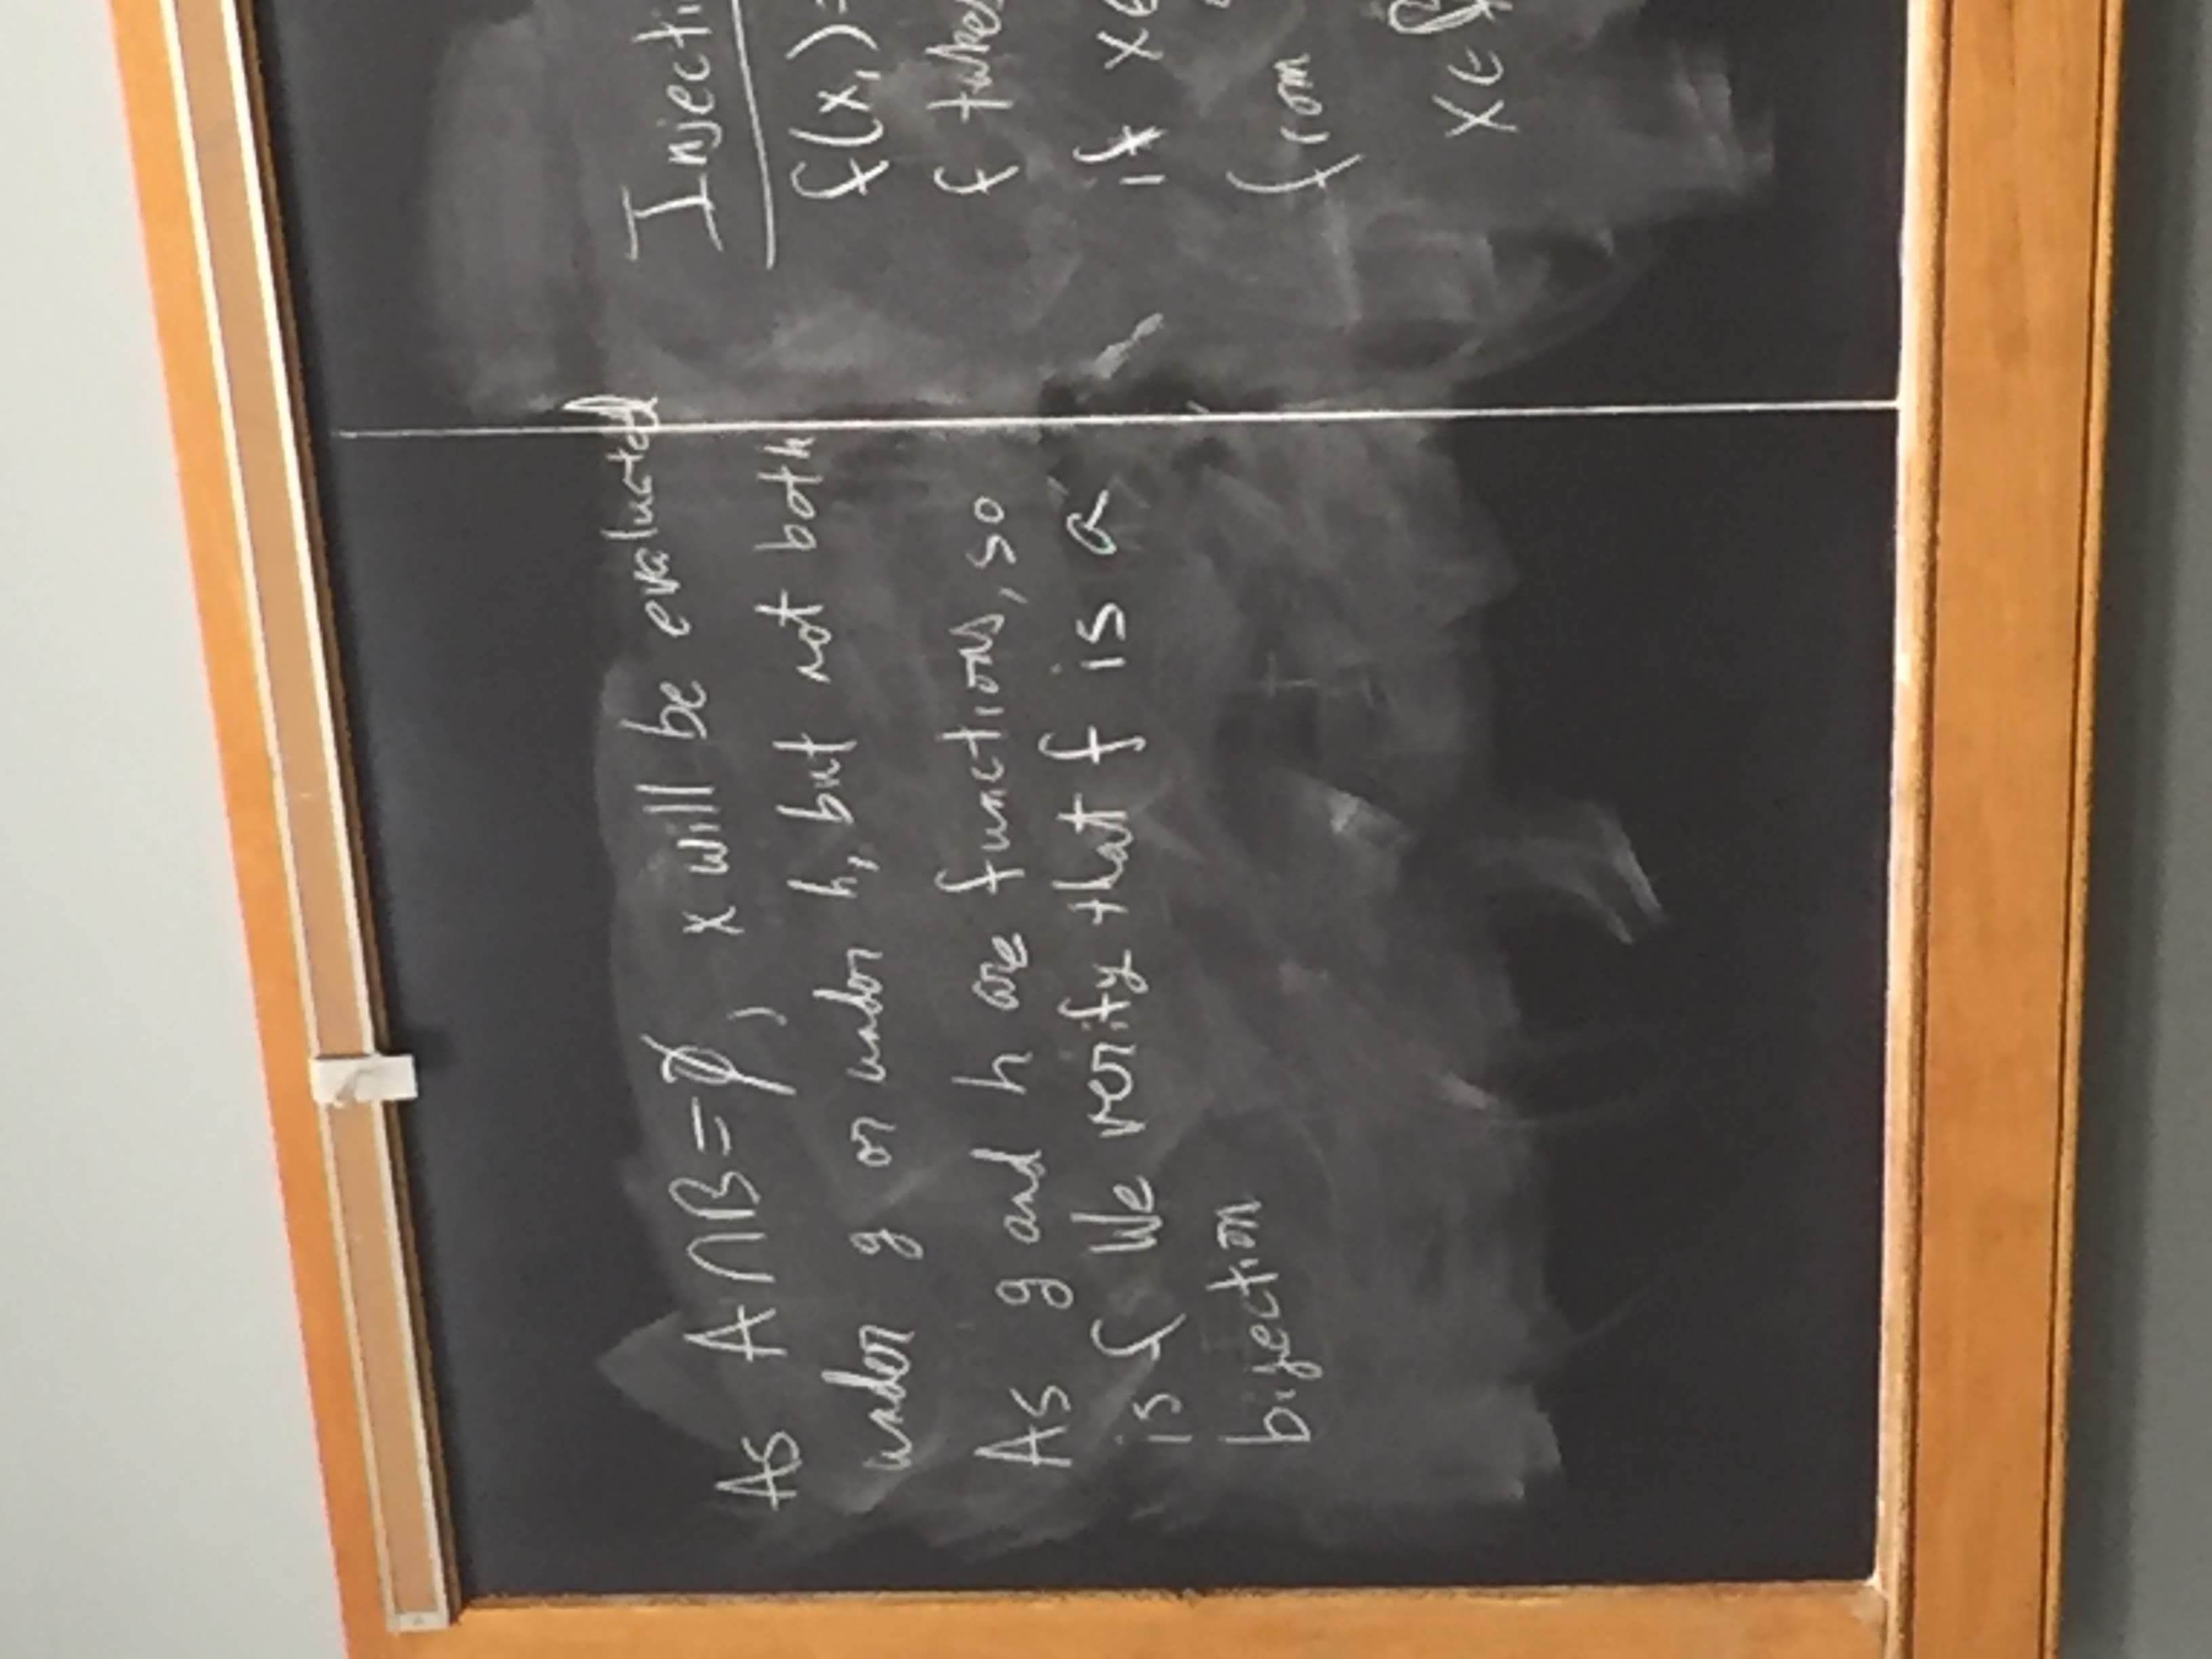 As A∩B=∅, x will be evaluated
under g or under h, but not both
As g and h are functions, so
is f We verify that f is a
bijection
Injecti
f(x₁)=
f takes
if x∈
from
x∈B